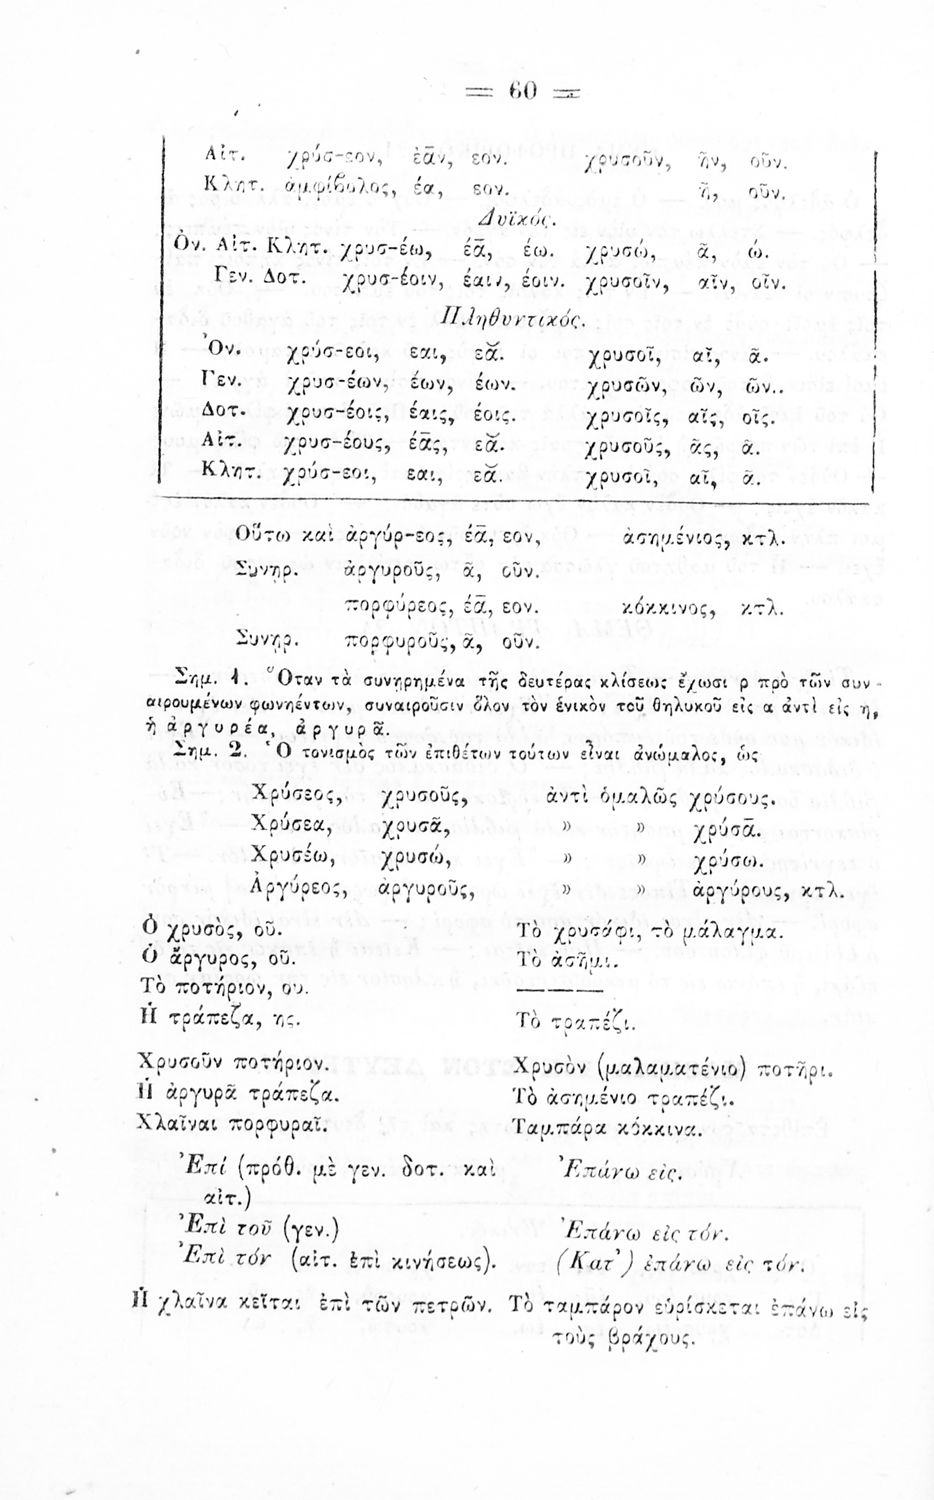 = 60 =
Αἰτ. χρύσ-εον, έᾱν, εον. χρυσοῦν, ῆν, οῦν.
Κλητ. ἀμφίβολος, έα, εον. ῆ, οῦν.
Δυϊκός.
Ὀν. Αἰτ. Κλητ. χρυσ-έω, έᾱ, έω. χρυσώ, ᾶ, ώ.
Γεν. Δοτ. χρυσ-έοιν, έαιν, έοιν. χρυσοῖν, αῖν, οῖν.
Πληθυντικός.
Ὀν. χρύσ-εοι, εαι, εᾰ. χρυσοῖ, αῖ, ᾶ.
Γεν. χρυσ-έων, έων, έων. χρυσῶν, ῶν, ῶν..
Δοτ. χρυσ-έοις, έαις, έοις. χρυσοῖς, αῖς, οῖς.
Αἰτ. χρυσ-έους, έᾱς, εᾰ. χρυσοῦς, ᾶς, ᾶ.
Κλητ. χρύσ-εοι, εαι, εᾰ. χρυσοῖ, αῖ, ᾶ.
Οὕτω καὶ ἀργύρ-εος, έᾱ, εον, ἀσημένιος, κτλ.
Συνηρ. ἀργυροῦς, ᾶ, οῦν.
πορφύρεος, έᾱ, εον. κόκκινος, κτλ.
Συνηρ. πορφυροῦς, ᾶ, οῦν.
Σημ. 1. Ὅταν τὰ συνῃρημένα τῆς δευτέρας κλίσεως ἔχωσι ρ πρὸ τῶν συν-
αιρουμένων φωνηέντων, συναιροῦσιν ὅλον τὸν ἑνικὸν τοῦ θηλυκοῦ εἰς α ἀντὶ εἰς η,
ἡ ἀργυρέα, ἀργυρᾶ.
Σημ. 2. Ὁ τονισμὸς τῶν ἐπιθέτων τούτων εἶναι ἀνώμαλος, ὡς
Χρύσεος, χρυσοῦς, ἀντὶ ὁμαλῶς χρύσους.
Χρύσεα, χρυσᾶ, » » χρύσᾱ.
Χρυσέω, χρυσώ, » » χρύσω.
Ἀργύρεος, ἀργυροῦς, » » ἀργύρους, κτλ.
Ὁ χρυσὸς, οῦ. Τὸ χρυσάφι, τὸ μάλαγμα.
Ὁ ἄργυρος, οῦ. Τὸ ἀσῆμι.
Τὸ ποτήριον, ου.
Ἡ τράπεζα, ης. Τὸ τραπέζι.
Χρυσοῦν ποτήριον. Χρυσὸν (μαλαματένιο) ποτῆρι.
Ἡ ἀργυρᾶ τράπεζα. Τὸ ἀσημένιο τραπέζι.
Χλαῖναι πορφυραῖ. Ταμπάρα κόκκινα.
Ἐπί (πρόθ. μὲ γεν. δοτ. καὶ Ἐπάνω εἰς.
αἰτ.)
Ἐπὶ τοῦ (γεν.) Ἐπάνω εἰς τόν.
Ἐπὶ τόν (αἰτ. ἐπὶ κινήσεως). (Κατ') ἐπάνω εἰς τόν.
Ἡ χλαῖνα κεῖται ἐπὶ τῶν πετρῶν. Τὸ ταμπάρον εὑρίσκεται ἐπάνω εἰς
τοὺς βράχους.